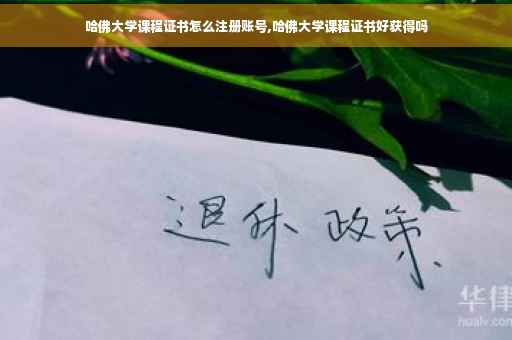 哈佛大学课程证书怎么注册账号,哈佛大学课程证书好获得吗
退休 政策
华律
hualv.com